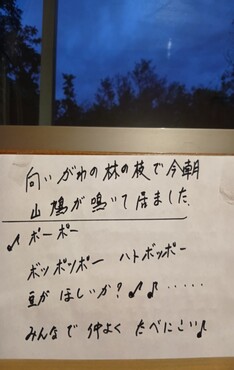 向いがわの林の枝で今朝
山鳩が鳴いて居ました
♪ポーポー
ボッポッポー ハトボッポー
豆がほしいか？♪♪‥‥‥
みんなで仲よくたべにこい♪